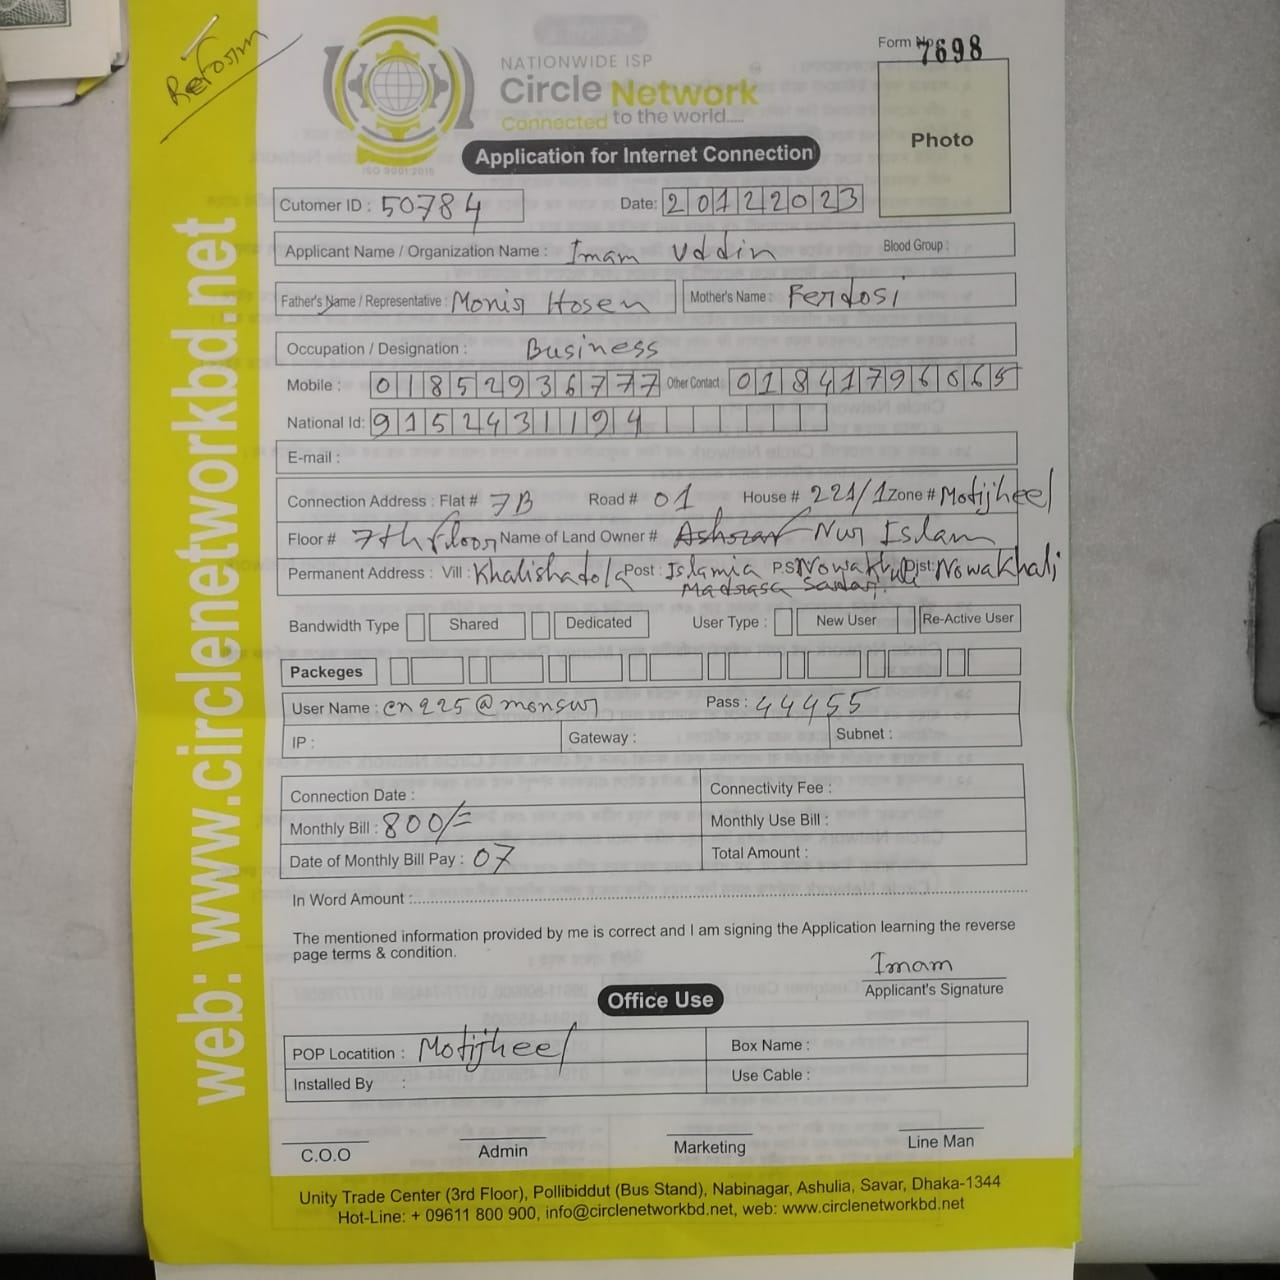 Reform
Form No 7698
NATIONWIDE ISP
Circle Network
Connected to the world.....
ISO 9001:2015
Application for Internet Connection
Photo
Cutomer ID : 50784 Date: 20122023
Applicant Name / Organization Name : Imam Uddin Blood Group :
Father's Name / Representative : Monir Hosen Mother's Name : Ferdosi
Occupation / Designation : Business
Mobile : 01852936777 Other Contact 01841796065
National Id: 9152431194
E-mail :
Connection Address : Flat # 7B Road # 01 House # 221/1 Zone # Motijheel
Floor # 7th floor Name of Land Owner # Nur Islam
Permanent Address : Vill : Khalishadola Post : Islamia Madrasa P.S: Sadar Dist: Nowakhali
Bandwidth Type Shared Dedicated User Type : New User Re-Active User
Packeges
User Name : cn225@monsur Pass : 44455
IP : Gateway : Subnet :
Connection Date : Connectivity Fee :
Monthly Bill : 800/= Monthly Use Bill :
Date of Monthly Bill Pay : 07 Total Amount :
In Word Amount :
The mentioned information provided by me is correct and I am signing the Application learning the reverse
page terms & condition.
Imam
Applicant's Signature
Office Use
POP Locatition : Motijheel Box Name :
Installed By : Use Cable :
C.O.O Admin Marketing Line Man
Unity Trade Center (3rd Floor), Pollibiddut (Bus Stand), Nabinagar, Ashulia, Savar, Dhaka-1344
Hot-Line: + 09611 800 900, info@circlenetworkbd.net, web: www.circlenetworkbd.net
web: www.circlenetworkbd.net